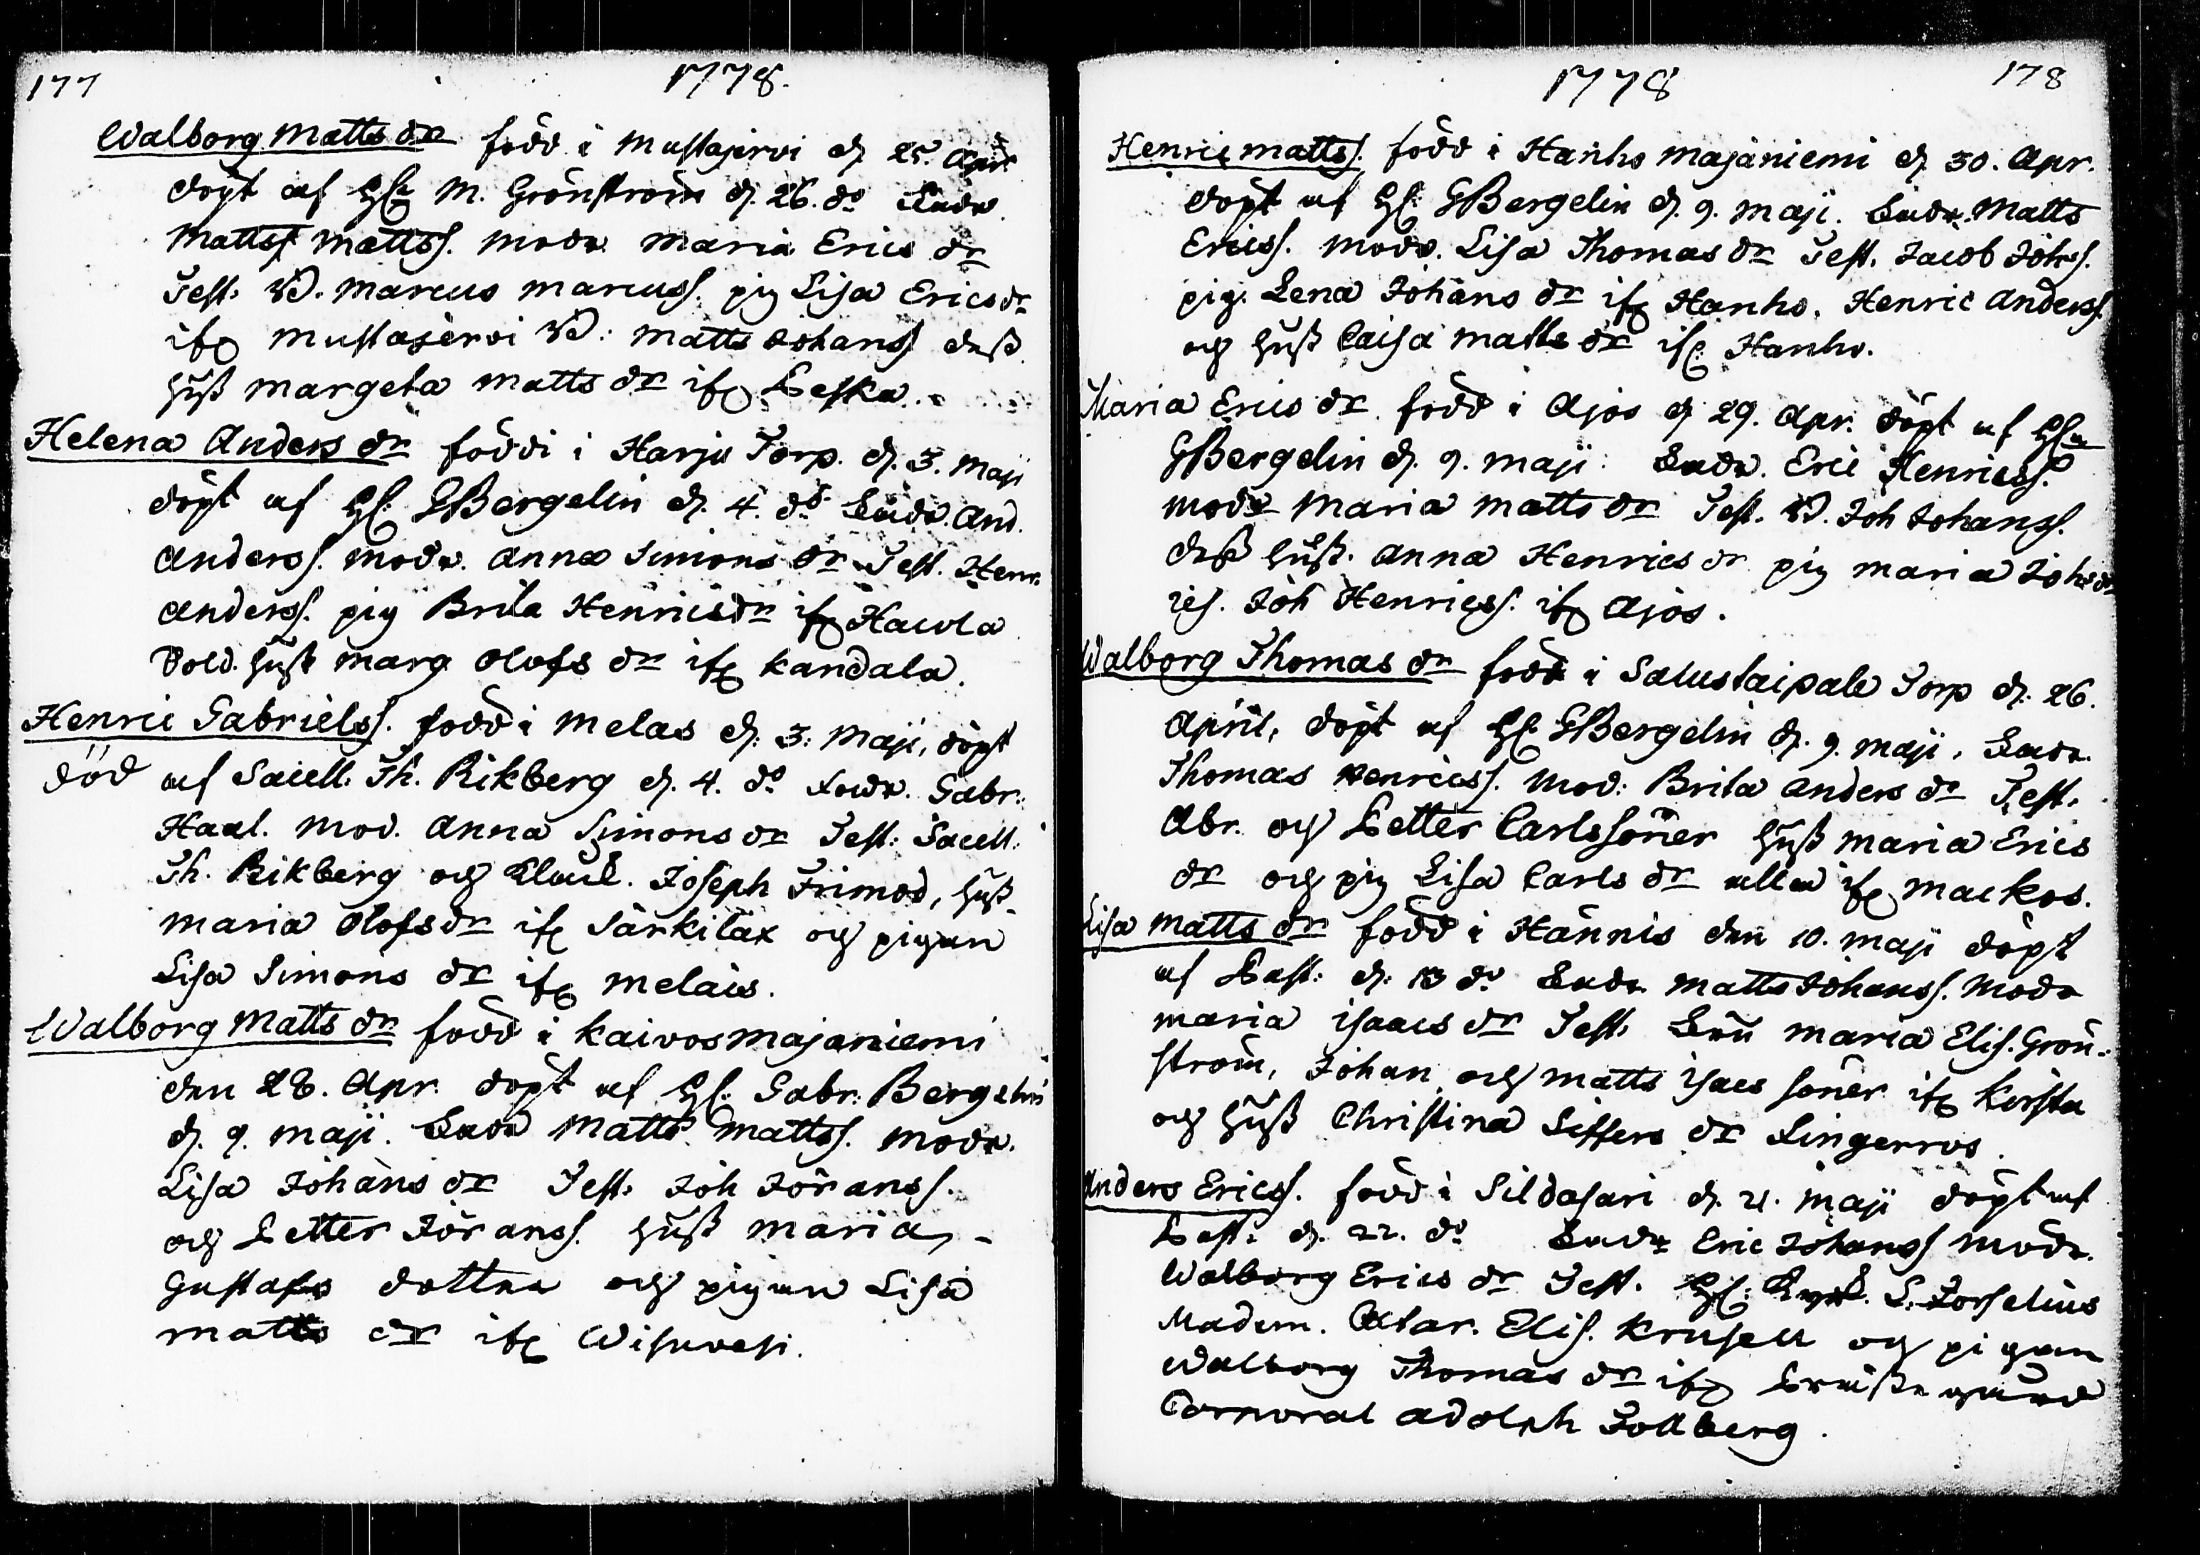 177 1778.
Walborg Matts dr född i Mustajervi d. 25. Apr.
döpt af H. M. Grönström d. 26. do Fadr.
Matts Matts. Modr Maria Erics dr
Test. B. Marcus Marcuss. pig Lisa Ericsdr
ifr Mustajervi B: Matts Johans dess
hust Margeta Matts dr ifr Leska.
Helena Anders dr föddi i Harju Torp. d. 3. Maji
döpt af H. GBergelin d. 4. do Fadr. And.
Anderss. modr. Anna Simons dr Test. Henr.
Anderss. pig Brita Henricsdr ifr Hacola
Bold. hust Marg Olofs dr ifr Kandala.
Henric Gabrielss. född i Melas d. 3: Maji, döpt
död af Sacell. Th. Rikberg d. 4. do Fadr. Gabr.
Haal. Mod. Anna Simons dr Test. Sacell.
Th. Rikberg och Joseph Frimod, hust.
Maria Olofsdr ifr Särkilax och pigan
Lisa Simons dr ifr Melais.
Walborg Matts dr född i Kaivosmajaniemi
den 28. Apr. döpt af H. Gabr: Bergelin
d. 9. maji. Fadr Matts Mattss. Modr.
Lisa Johans dr Test. Joh Jöranss.
och Petter Jöranss. hust Maria
Gustafs dotter och pigan Lisa
Matts dr ifr Wisuvesi.
1778 178
Henric Mattss. född i Hanho Majaniemi d. 30. Apr.
döpt af H. GBergelin d. 9. Maji. Fadr. Matts
Ericss. Modr. Lisa Thomas dr Test. Jacob Johss.
pig. Lena Johans dr ifr Hanho. Henric Anderss.
och hust Caisa Matts dr ifr Hanho.
Maria Erics dr. född i Ajos d. 29. Apr. döpt af H.
GBergelin d. 9. maji. Fadr. Eric Henricss.
modr Maria Matts dr Test. B. Joh Johanss.
dess hust. Anna Henrics dr pig Maria Johsdr
Joh Henricss. ifr Ajos.
Walborg Thomas dr född i Salustaipale Torp d. 26.
April, döpt af H. GBergelin d. 9. maji. Fadr.
Thomas Henricss. Mod: Brita Anders dr Test.
Abr. och Petter Carlssöner hust Maria Erics
dr och pig Lisa Carls dr alla ifr Mackos.
Lisa Matts dr född i Hännis den 10. maji döpt
af Past: d. 13 do Fadr Matts Johanss. Modr
Maria Isaacs dr Test. Fru Maria Elis. Grön-
ström, Johan och Matts Isacs söner ifr Kirsta
och hust Christina Siffers dr Lingerros.
Anders Ericss. född i Sildasari d. 21. maji döpt af
Past. d. 22. do Fadr Eric Johanss Modr.
Walborg Erics dr Test. H. L. Forselius
Madem. Cathar. Elis. Krusell och pigan
Walborg Thomas dr ifr
Corporal Adolph Tollberg.